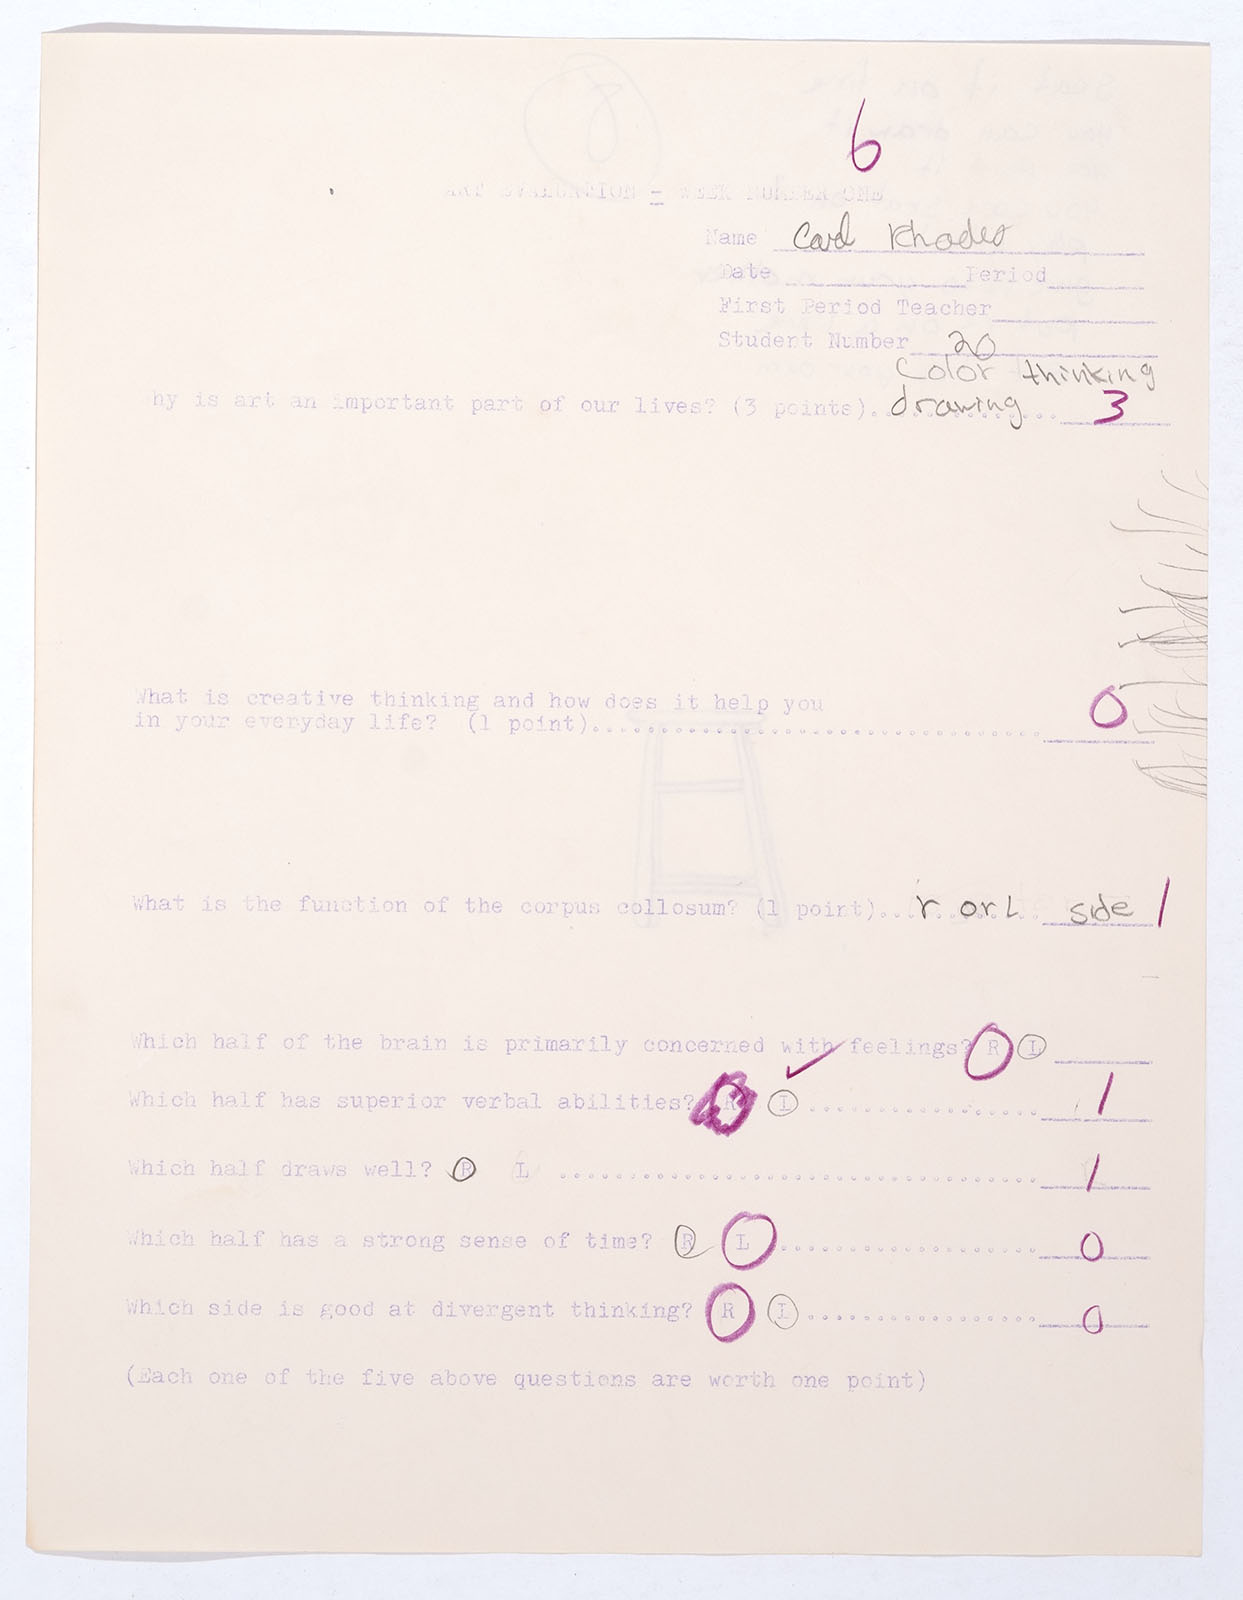 6
ART EVALUATION - WEEK NUMBER ONE
Name Carl Rhodes
Date Period
First Period Teacher
Student Number 20
Color thinking
hy is art an important part of our lives? (3 points).. drawing ... 3
What is creative thinking and how does it help you 0
in your everyday life? (1 point)....................................
What is the function of the corpus collosum? (1 point)... r or L side 1
Which half of the brain is primarily concerned with feelings? R L
Which half has superior verbal abilities? R L ................... 1
Which half draws well? R L ....................................... 1
Which half has a strong sense of time? R L ..................... 0
Which side is good at divergent thinking? R L ................... 0
(Each one of the five above questions are worth one point)